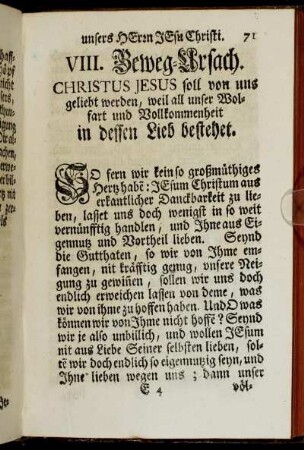 unsers HErrn JEsu Christi. 71
VIII. Beweg-Ursach.
CHRISTUS JESUS soll von uns
geliebt werden, weil all unser Wol-
fart und Vollkommenheit
in dessen Lieb bestehet.
SO fern wir kein so großmüthiges
Hertz habē: JEsum Christum aus
erkantlicher Danckbarkeit zu lie-
ben, lasset uns doch wenigst in so weit
vernünfftig handlen, und Jhne aus Ei-
gennutz und Vortheil lieben. Seynd
die Gutthaten, so wir von Jhme em-
fangen, nit kräfftig genug, vnsere Nei-
gung zu gewiñen, sollen wir uns doch
endlich erweichen lassen von deme, was
wir von ihme zu hoffen haben. Und O was
können wir von Jhme nicht hoffē? Seynd
wir je also unbillich, und wollen JEsum
nit aus Liebe Seiner selbsten lieben, sol-
tē wir doch endlich so eigennutzig seyn, und
Jhne lieben wegen uns; dann unser
E 4 völ-